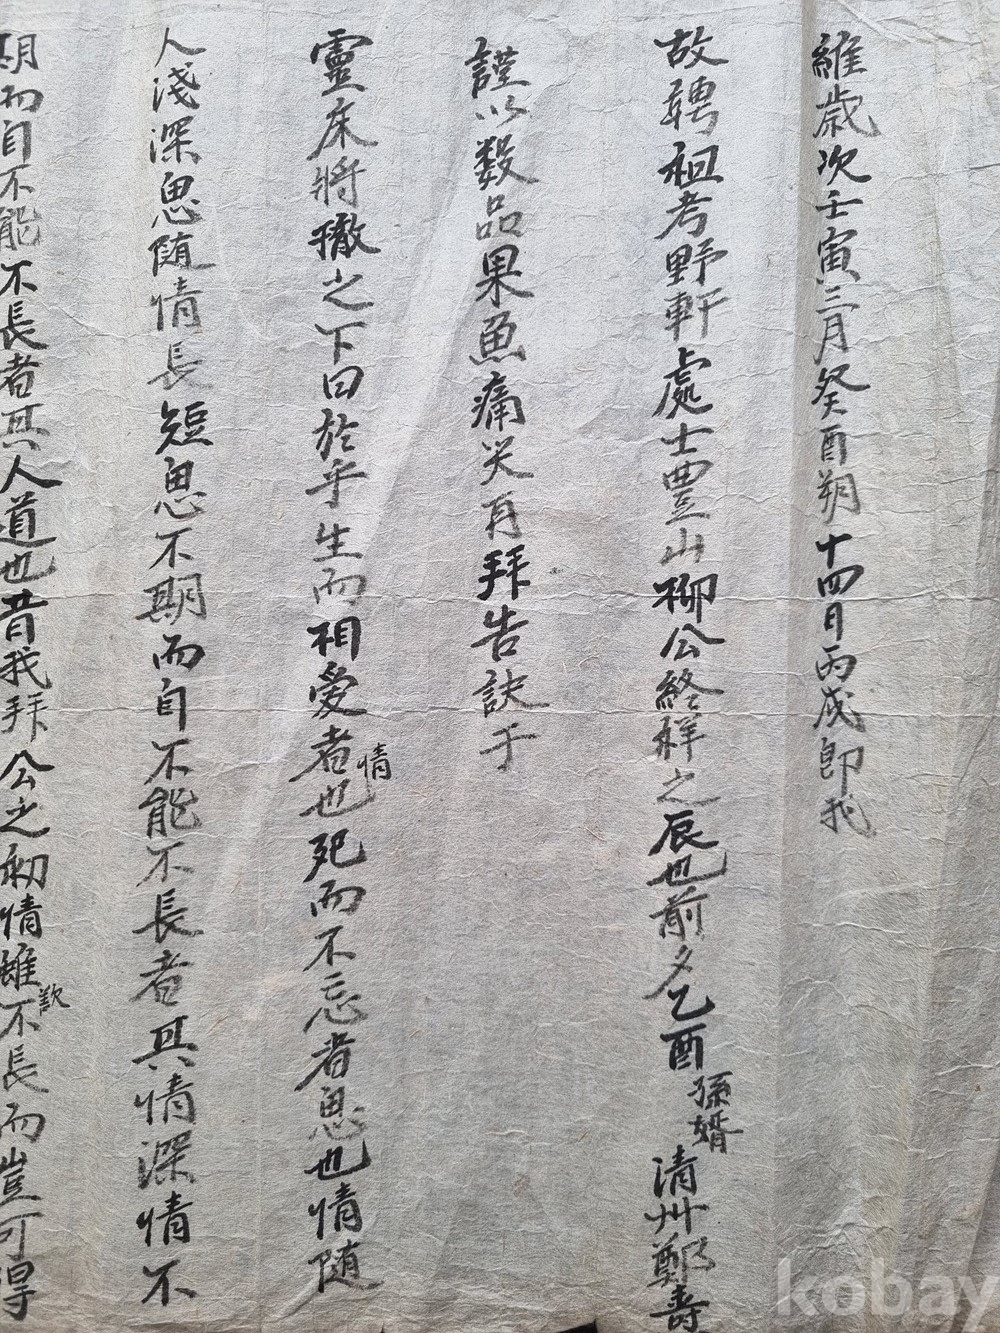 維歲次壬寅三月癸酉朔十四日丙戌卽我
故聘祖考野軒處士豊山柳公終祥之辰也前夕乙酉孫婿清州鄭壽
謹以數品果魚痛哭再拜告訣于
靈床將撤之下曰於乎生而相愛者情也死而不忘者思也情隨
人淺深思隨情長短思不期而自不能不長者其情深情不
期而自不能不長者其人道也昔我拜公之初情雖不歎長而豈可得
kobay